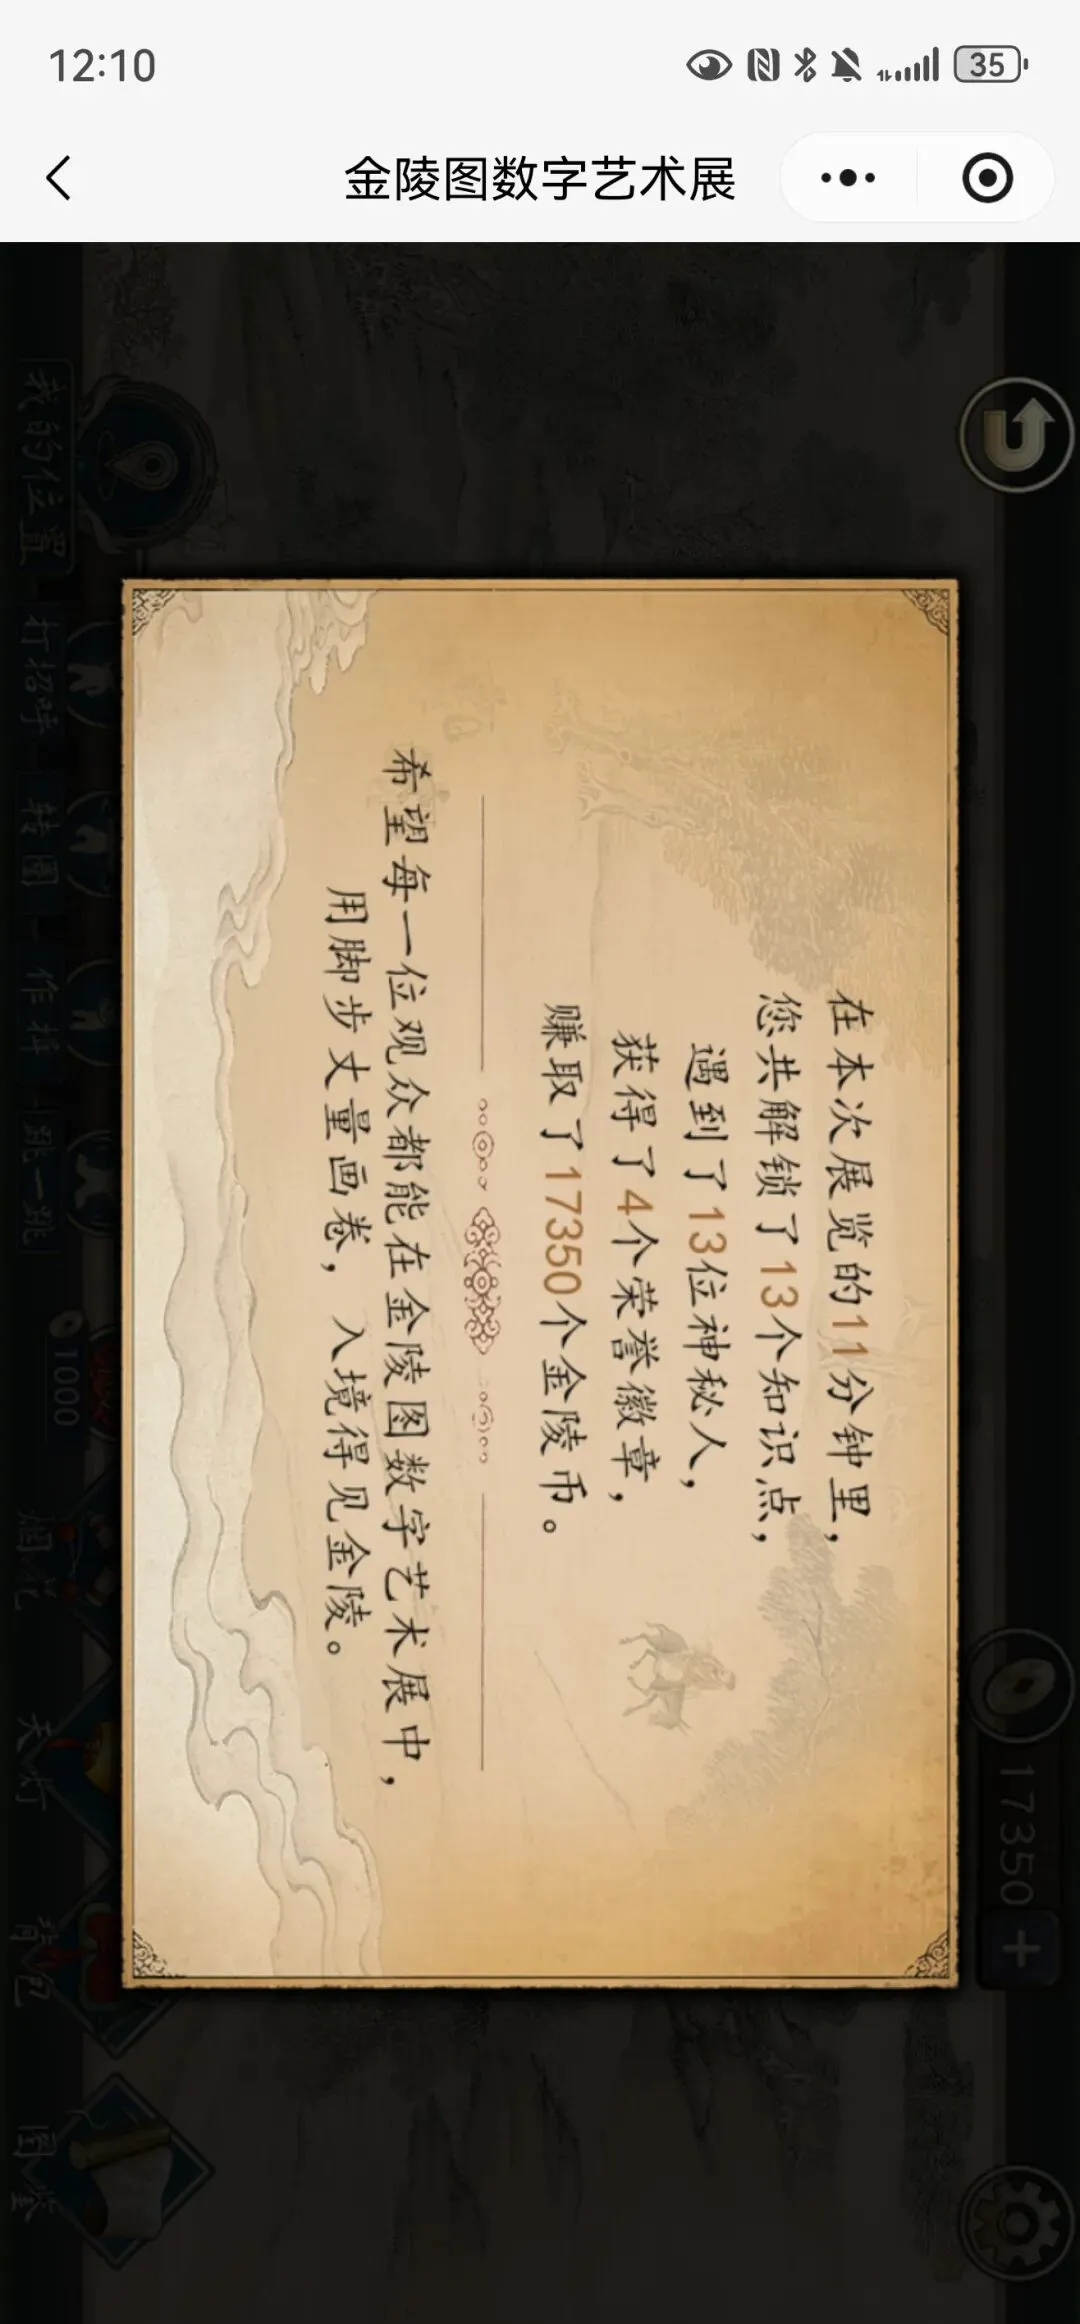 12:10
35
金陵图数字艺术展
在本次展览的11分钟里，
您共解锁了13个知识点，
遇到了13位神秘人，
获得了4个荣誉徽章，
赚取了17350个金陵币。
希望每一位观众都能在金陵图数字艺术展中，
用脚步丈量画卷，入境得见金陵。
17350
+
我的位置
打招呼
转圈
作揖
跳一跳
1000
烟花
天灯
背包
图鉴